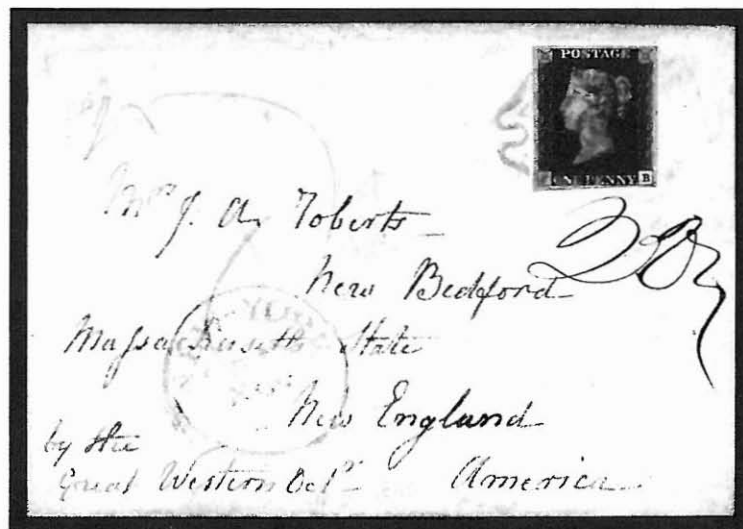 POSTAGE
ONE PENNY B
Mrs J. A. Roberts
New Bedford
Massachusetts State
New England
by the
Great Western Oct America